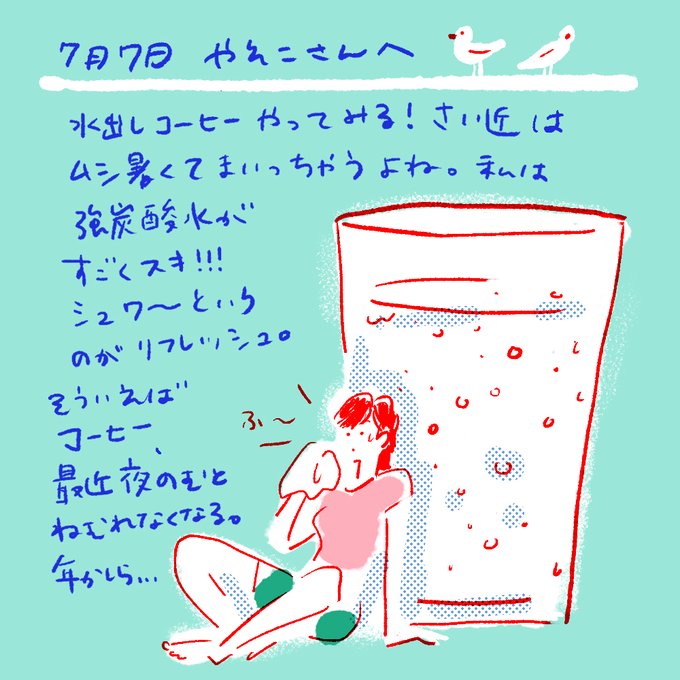 7月7日 やえこさんへ
水出しコーヒーやってみる！さい近は
ムシ暑くてまいっちゃうよね。私は
強炭酸水が
すごくスキ!!!
シュワ〜という
のがリフレッシュ。
そういえば
コーヒー、
最近夜のむと
ねむれなくなる。
年かしら...
ふ〜